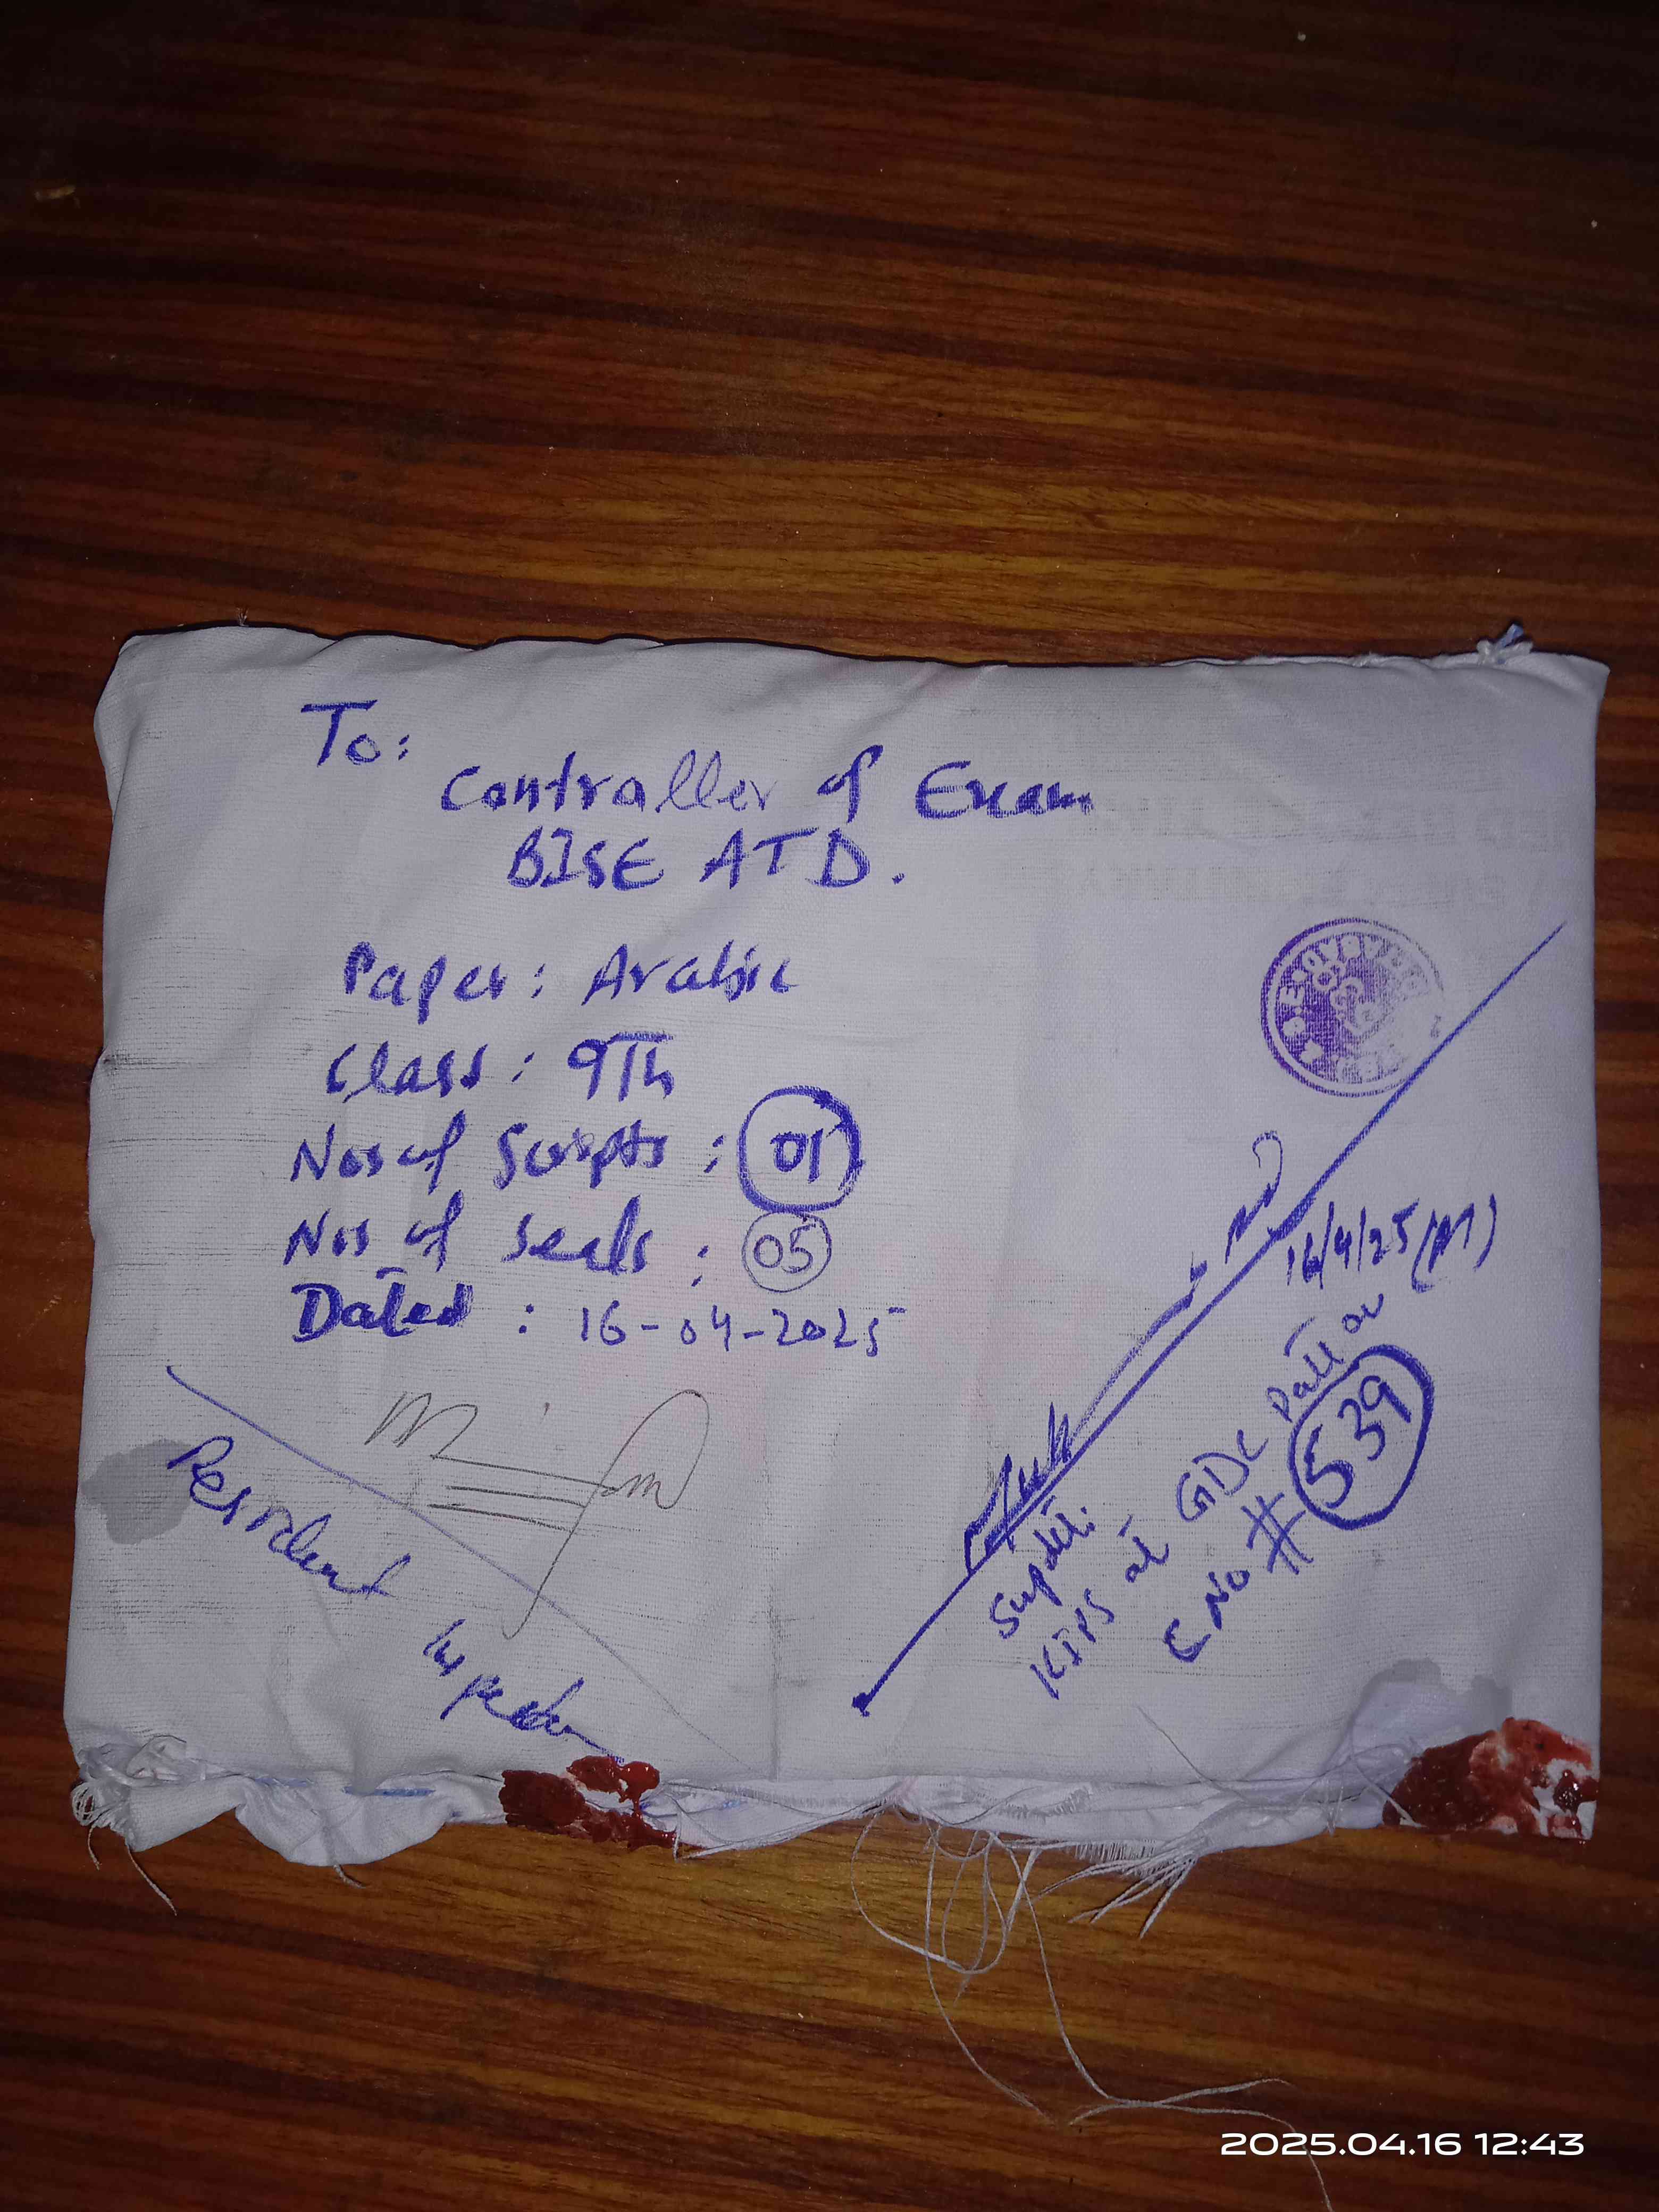 To:
Controller of Exam
BISE ATD.
Paper: Arabic
Class: 9Th
Nos of Scripts : 01
Nos of Seals : 05
Dated : 16-04-2025
Resident Inspector
16/4/25 (M)
Supdtt:
KIPS at GDC Pattan
C No # 539
2025.04.16 12:43